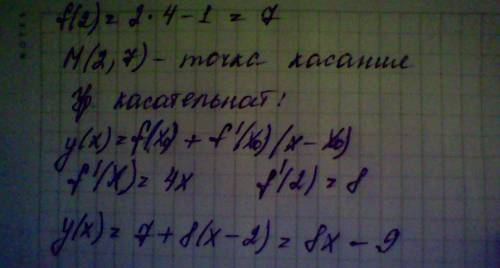 f(2) = 2·4 − 1 = 7
М(2, 7) – точка касания
Ур. касательной:
y(x) = f(x₀) + f'(x₀)(x − x₀)
f'(x) = 4x f'(2) = 8
y(x) = 7 + 8(x − 2) = 8x − 9